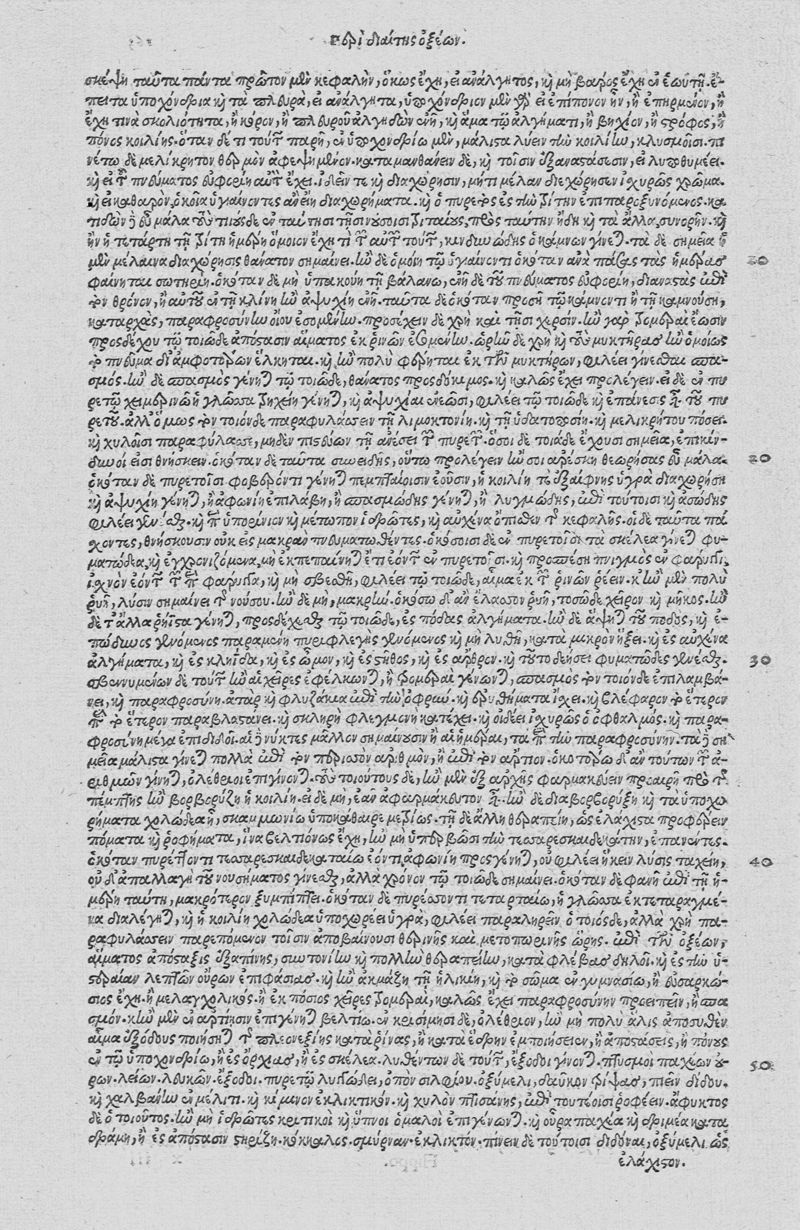 περὶ διαίτης ὀξέων.
σκέψῃ ταῦτα πάντα πρῶτον μὲν κεφαλὴν, ὅκως ἔχῃ, εἰ ἀνάλγητος, καὶ μὴ βάρος ἔχῃ ἐν ἑωυτῇ. ἔ-
πειτα ὑποχόνδρια καὶ τὰ πλευρὰ, εἰ ἀνάλγητα, ὑποχόνδριον μὲν γὰρ εἰ ἐπίπονον ἦν, ἢ ἐπηρμένον, ἢ
ἔχῃ τινὰ σκολιότητα, ἢ κόρον, ἢ πλευροῦ ἀλγηδὼν ἐνῇ, καὶ ἅμα τῷ ἀλγήματι, ἢ βηχίον, ἢ στρόφος, ἢ
πόνος κοιλίης. ὅταν δέ τι τούτων παρῇ, ἐν ὑποχονδρίῳ μὲν, μάλιστα λύειν τὴν κοιλίην, κλυσμοῖσι. πι
νέτω δὲ μελίκρητον θερμὸν ἀφεψημένον. καταμανθάνειν δὲ, καὶ τοῖσιν ἐξαναστάσεσιν, εἰ λιποθυμέει.
καὶ εἰ τοῦ πνεύματος εὐφορίη αὐτὸν ἔχει. ἰδεῖν τε καὶ διαχώρησιν, μήτι μέλαν διεχώρησεν ἰσχυρῶς χρῶμα.
καὶ εἰ καθαρὸν, ὁκοῖα ὑγιαίνοντος ἂν εἴη διαχωρήματα. καὶ ὁ πυρετὸς ἐς τὴν τρίτην ἐπιπαροξυνόμενος. κα
τιδὼν δὲ εὖ μάλα τοὺς τοιούσδε ἐν ταύτῃσι τῇσι νούσοισι τριταίους, πρὸς ταύτην ἤδη καὶ τὰ ἄλλα συνορῇν. καὶ
ἢν ἡ τετάρτη τῇ τρίτῃ ἡμέρῃ ὅμοιον ἔχῃ τι τῶν αὐτῶν τούτων, κινδυνώδης ὁ κάμνων γίνεται. τὰ δὲ σημεῖα ἡ
μὲν μέλαινα διαχώρησις θάνατον σημαίνει. ἢν δὲ ὁμοίη τῷ ὑγιαίνοντι ὁκόταν ἀνὰ πάσας τὰς ἡμέρας 10
φαίνηται σωτηρίη. ὁκόταν δὲ μὴ ὑπακούῃ τῇ βαλάνῳ, ἐνῇ δὲ τοῦ πνεύματος εὐφορίη, διαναστὰς ἐπὶ
τὸν θρόνον, ἢ αὐτοῦ ἐν τῇ κλίνῃ ἢν ἀψυχίη ἐνῇ. ταῦτα δὲ ὁκόταν προσῇ τῷ κάμνοντι ἢ τῇ καμνούσῃ,
καταρχὰς, παραφροσύνην οἴου ἐσομένην. προσέχειν δὲ χρὴ καὶ τῇσι χερσίν. ἢν γὰρ τρομεραὶ ἔωσιν
προσδέχου τῷ τοιῷδε ἀπόστασιν αἵματος ἐκ ῥινῶν ἐσομένην. ὁρῆν δὲ χρὴ καὶ τοὺς μυκτῆρας ἢν ὁμοίως
τὸ πνεῦμα δι' ἀμφοτέρων ἕλκηται. καὶ ἢν πολὺ φέρηται ἐκ τῶν μυκτήρων, φιλέει γίνεσθαι σπα-
σμός. ἢν δὲ σπασμὸς γένηται τῷ τοιῷδε, θάνατος προσδόκιμος. καὶ καλῶς ἔχει προλέγειν. εἰ δὲ ἐν πυ
ρετῷ χειμερινῷ ἡ γλῶσσα τρηχείη γένηται, καὶ ἀψυχίαι ἐνέωσι, φιλέει τῷ τοιῷδε καὶ ἐπάνεσις εἶναι τοῦ πυ
ρετοῦ. ἀλλ' ὅμως τὸν τοιόνδε παραφυλάσσειν τῇ λιμοκτονίῃ. καὶ τῇ ὑδατοποσίῃ. καὶ μελικρήτου πόσει.
καὶ χυλοῖσι παραφύλασσε, μηδὲν πιστεύων τῇ ἀνέσει τῶν πυρετῶν. ὅσοι δὲ τοιάδε ἔχουσι σημεῖα, ἐπικίν-
δυνοί εἰσι θνήσκειν. ὁκόταν δὲ ταῦτα συνειδῇς, οὕτω προλέγειν ἤν σοι ἀρέσκῃ θεωρήσας εὖ μάλα. 20
ὁκόταν δὲ πυρετοῖσι φοβερόν τι γένηται πεμπταίοισιν ἐοῦσιν, ἡ κοιλίη τε ἐξαίφνης ὑγρὰ διαχωρήσῃ
καὶ ἀψυχίη γένηται, ἢ ἀφωνίη ἐπιλάβῃ, ἢ σπασμώδης γένηται, ἢ λυγμώδης, ἐπὶ τούτοισι καὶ ἀσώδης
φιλέει γίνεσθαι. καὶ ὑπὸ ῥίνιον καὶ μέτωπον ἱδρῶτες, καὶ αὐχένα ὄπιθεν τῆς κεφαλῆς. οἱ δὲ ταῦτα πά
χοντες, θνήσκουσιν οὐκ εἰς μακρὰν πνευματωθέντες. ὁκόσοισι δὲ ἐν πυρετοῖσι τὰ σκέλεα γίνεται φυ-
ματώδεα, καὶ ἐγχρονιζόμενα, μὴ ἐκπεπαίνῃ ἔτι ἐόντων ἐν πυρετοῖσι. καὶ προσπέσῃ πνιγμὸς ἐν φάρυγγι,
ἰσχνῶν ἐόντων τῶν φάρυγγα, καὶ μὴ σβεσθῇ, φιλέει τῷ τοιῷδε, αἷμα ἐκ τῶν ῥινῶν ῥέειν. κἢν μὲν πολὺ
ῥυῇ, λύσιν σημαίνει τοῦ νούσου. ἢν δὲ μὴ, μακρήν. ὁκόσῳ δ' ἂν ἔλασσον ῥυῇ, τοσῷδε χεῖρον καὶ μῆκος. ἢν
δὲ τἄλλα ῥήϊστα γένηται, προσδέχεσθαι τῷ τοιῷδε, ἐς πόδας ἀλγήματα. ἢν δὲ ἅψηται τοῦ ποδὸς, καὶ ἐ-
πώδυνος γενόμενος παραμένῃ πυριφλεγὴς γενόμενος καὶ μὴ λυθῇ, κατὰ μικρὸν ἥξει. καὶ ἐς αὐχένα
ἀλγήματα, καὶ ἐς κληῖδα, καὶ ἐς ὦμον, καὶ ἐς στῆθος, καὶ ἐς ἄρθρον. καὶ τοῦτο δεήσει φυματῶδες γενέσθαι. 30
σβεννυμένων δὲ τούτων ἢν αἱ χεῖρες ἐφέλκωνται, ἢ τρομεραὶ γένωνται, σπασμὸς τὸν τοιόνδε ἐπιλαμβά-
νει, καὶ παραφροσύνη. ἀτὰρ καὶ φλυζάκια ἐπὶ τὴν ὀφρύν. καὶ ἐρυθήματα ἴσχει. καὶ βλέφαρον τὸ ἕτερον
παρὰ τὸ ἕτερον παραβλαστάνει. καὶ σκληρὴ φλεγμονὴ κατέχει. καὶ οἰδέει ἰσχυρῶς ὁ ὀφθαλμός. καὶ παρα-
φροσύνη μέγα ἐπιδιδοῖ. αἱ δὲ νύκτες μᾶλλον σημαίνουσιν ἢ αἱ ἡμέραι, τὰ περὶ τὴν παραφροσύνην. τὰ δὲ ση-
μεῖα μάλιστα γίνεται πολλὰ ἐπὶ τὸν περισσὸν ἀριθμὸν, ἢ ἐπὶ τὸν ἄρτιον. ὁκοτέρῳ δ' ἂν τούτων τῶν ἀ-
ριθμῶν γίνηται, ὀλέθριοι ἐπιγίνονται. τοὺς τοιούτους δὲ, ἢν μὲν ἐξ ἀρχῆς φαρμακεύειν προαιρῇ πρὸ τῆς
πέμπτης ἢν βορβορύζῃ ἡ κοιλίη. εἰ δὲ μὴ, ἐᾷν ἀφαρμάκευτον εἶναι. ἢν δὲ διαβορβορύξῃ καὶ τὰ ὑποχω
ρήματα χολώδεα ᾖ, σκαμμωνίῳ ὑποκάθαιρε μετρίως. τῇ δὲ ἄλλῃ θεραπείῃ, ὡς ἐλάχιστα προσφέρειν
πόματα καὶ ῥοφήματα, ἵνα βελτιόνως ἔχῃ, ἢν μὴ ὑπερβῶσι τὴν τεσσαρεσκαιδεκάτην, ἐπανέντες.
ὁκόταν πυρετῷ ἐόντι τεσσαρεσκαιδεκαταίῳ ἐόντι ἀφωνίη προσγένηται, οὐ φιλέει ἥκειν λύσις ταχείη, 40
οὐδ' ἀπαλλαγὴ τοῦ νουσήματος γίνεσθαι, ἀλλὰ χρόνον τῷ τοιῷδε σημαίνει. ὁκόταν δὲ φανῇ ἐπὶ τῇ ἡ-
μέρῃ ταύτῃ, μακρότερον ξυμπίπτει. ὁκόταν δὲ πυρέσσοντι τεταρταίῳ, ἡ γλῶσσα ἐκτεταραγμέ-
να διαλέγηται, καὶ ἡ κοιλίη χολώδεα ὑποχωρέει ὑγρὰ, φιλέει παραληρεῖν ὁ τοιόσδε, ἀλλὰ χρὴ πα-
ραφυλάσσειν παρεπόμενον τοῖσιν ἀποβαίνουσι θερινῆς καὶ μετοπωρινῆς ὥρης. ἐπὶ τῶν ὀξέων,
αἵματος ἀπόσταξις ἐξαπίνης, συντονίην καὶ πολλὴν θεραπείην, κατὰ φλέβας δηλοῖ. καὶ ἐς τὴν ὑ-
στεραίαν λεπτῶν οὔρων ἐπιφάσιας. καὶ ἢν ἀκμάζῃ τῇ ἡλικίῃ, καὶ τὸ σῶμα ἐν γυμνασίῳ, ἢ εὐσαρκώ-
σιος ἔχῃ. ἢ μελαγχολικὸς, ἢ ἐκ πόσιος χεῖρες τρομεραὶ, καλῶς ἔχει παραφροσύνην προειπεῖν, ἢ σπα
σμόν. κἢν μὲν ἐν ἀρτίῃσιν ἐπιγένηται βελτίω. ἐν κρισίμῃσι δὲ, ὀλέθριον, ἢν μὴ πολὺ ἅλις ἀποσυθὲν
αἷμα ἐξόδους ποιήσῃ τῆς πλεονεξίης κατὰ ῥῖνας, ἢ κατὰ ἕδρην ἐμποιήσειεν, ἢ ἀποστάσεις, ἢ πόνους
ἐν τῷ ὑποχονδρίῳ, ἢ ἐς ὄρχιας, ἢ ἐς σκέλεα. λυθέντων δὲ τούτων, ἔξοδοι γίνονται. πτυσμοὶ παχέων οὔ- 50
ρων. λείων. λευκῶν. ἔξοδοι. πυρετῷ λυγγώδει, ὀπὸν σιλφίου. ὀξύμελι, δαῦκον τρίψας, πιεῖν δίδου.
καὶ χαλβάνην ἐν μέλιτι. καὶ κύμινον ἐκλεικτικόν. καὶ χυλὸν πτισάνης, ἐπὶ τουτέοισι ῥοφέειν. ἄφυκτος
δὲ ὁ τοιοῦτος. ἢν μὴ ἱδρῶτες κριτικοὶ καὶ ὕπνοι ὁμαλοὶ ἐπιγένωνται. καὶ οὖρα παχέα καὶ δριμέα κατα
δράμῃ, ἢ ἐς ἀπόστασιν στηρίξῃ. κόκκαλος. σμύρναν. ἐκλικτόν. πίνειν δὲ τούτοισι διδόναι, ὀξύμελι ὡς
ἐλάχιστον.